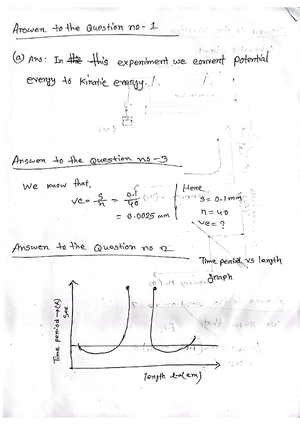 Answer to the Question no-1
(a) Ans: In this experiment we convert potential
evergy to kinatic energy.
Answer to the Question no-3
We know that,
vc = s/n = 0.1/40
= 0.0025 mm
Here,
s = 0.1 mm
n = 40
vc = ?
Answer to the Question no 2
Time period vs length
graph
Time period → (t)
Sec
length L→(cm)